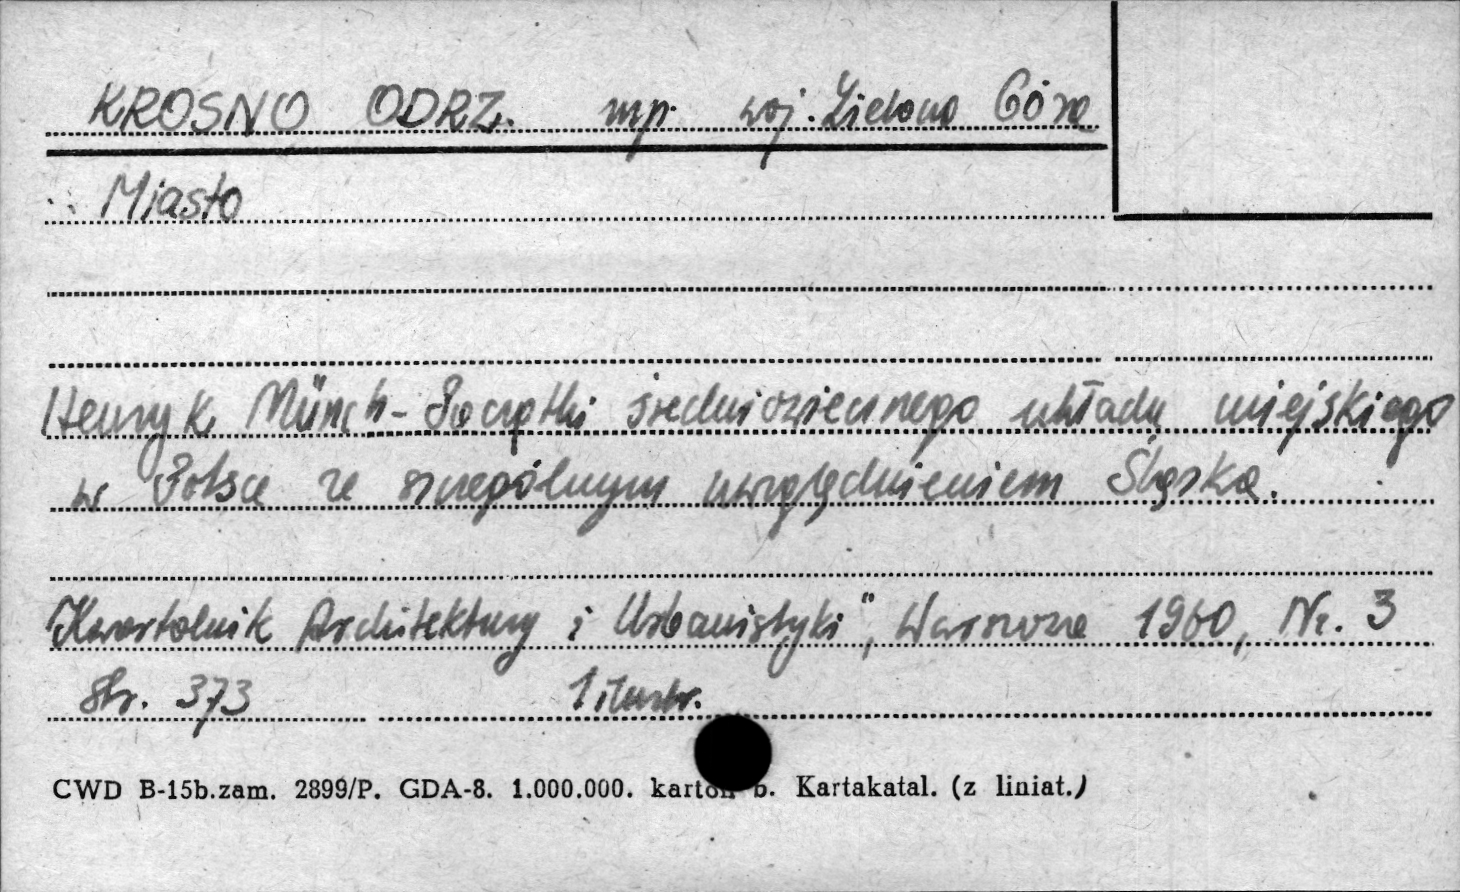 KROSNO ODRZ. mp. woj. Zielona Góra
Miasto
Henryk Münch - Początki średniowiecznego układu miejskiego
w Polsce ze szczególnym uwzględnieniem Śląska.
"Kwartalnik Architektury i Urbanistyki", Warszawa 1960, Nr. 3
str. 373 1 ilustr.
CWD B-15b.zam. 2899/P. GDA-8. 1.000.000. karton b. Kartakatal. (z liniat.)